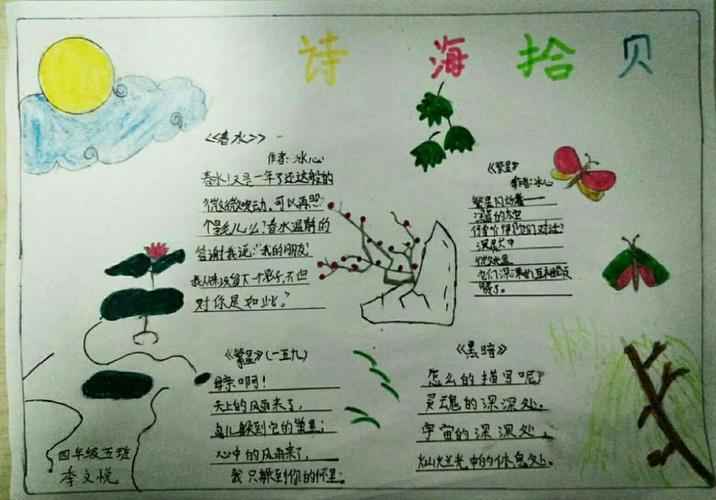 诗海拾贝
《春水》
作者:冰心
春水!又是一年了还这般的
微微吹动,可以再照
个影儿么?春水温静的
答谢我说:"我的朋友!
我从来没留下一个影子,不但
对你是如此。"
《繁星》
作者:冰心
繁星闪烁着——
深蓝的太空
何曾听得见他们对话?
沉默中
微光里
它们深深的互相颂赞
了。
《繁星》(一五九)
母亲啊!
天上的风雨来了,
鸟儿躲到它的巢里;
心中的风雨来了,
我只躲到你的怀里。
《黑暗》
怎么的描写呢?
灵魂的深深处,
宇宙的深深处,
灿烂光中的休息处。
四年级五班
李文悦